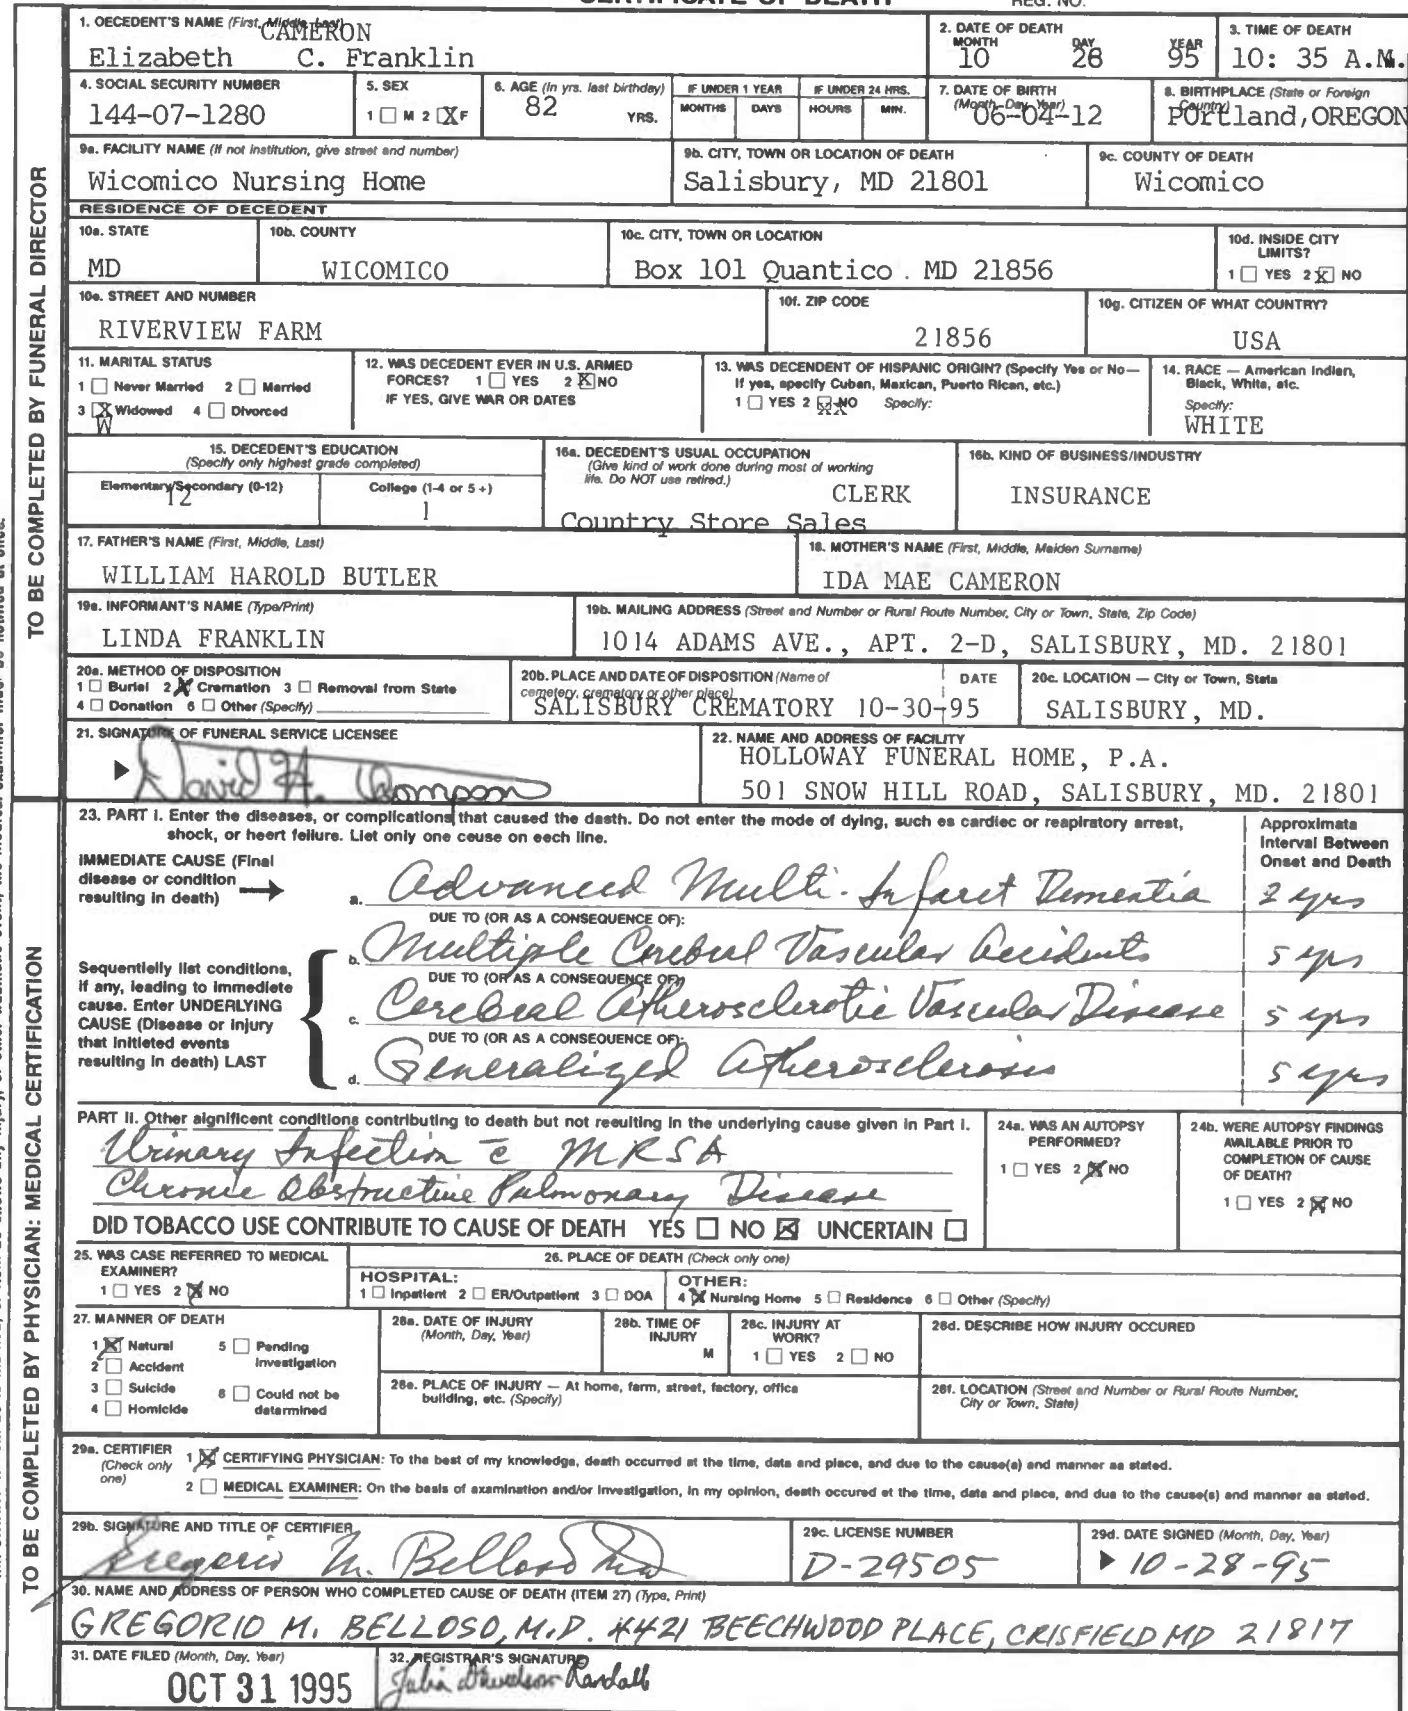 CERTIFICATE OF DEATH REG. NO.
TO BE COMPLETED BY FUNERAL DIRECTOR
1. DECEDENT'S NAME (First, Middle, Last)
CAMERON
Elizabeth C. Franklin
2. DATE OF DEATH
MONTH DAY YEAR
10 28 95
3. TIME OF DEATH
10: 35 A.M.
4. SOCIAL SECURITY NUMBER
144-07-1280
5. SEX
1 ☐ M 2 ☒ F
6. AGE (In yrs. last birthday)
82 YRS.
IF UNDER 1 YEAR
MONTHS DAYS
IF UNDER 24 HRS.
HOURS MIN.
7. DATE OF BIRTH
(Month, Day, Year)
06-04-12
8. BIRTHPLACE (State or Foreign
Country)
Portland, OREGON
9a. FACILITY NAME (If not institution, give street and number)
Wicomico Nursing Home
9b. CITY, TOWN OR LOCATION OF DEATH
Salisbury, MD 21801
9c. COUNTY OF DEATH
Wicomico
RESIDENCE OF DECEDENT
10a. STATE
MD
10b. COUNTY
WICOMICO
10c. CITY, TOWN OR LOCATION
Box 101 Quantico. MD 21856
10d. INSIDE CITY
LIMITS?
1 ☐ YES 2 ☒ NO
10e. STREET AND NUMBER
RIVERVIEW FARM
10f. ZIP CODE
21856
10g. CITIZEN OF WHAT COUNTRY?
USA
11. MARITAL STATUS
1 ☐ Never Married 2 ☐ Married
3 ☒ Widowed 4 ☐ Divorced
W
12. WAS DECEDENT EVER IN U.S. ARMED
FORCES? 1 ☐ YES 2 ☒ NO
IF YES, GIVE WAR OR DATES
13. WAS DECENDENT OF HISPANIC ORIGIN? (Specify Yes or No—
If yes, specify Cuban, Maxican, Puerto Rican, etc.)
1 ☐ YES 2 ☒ NO Specify:
14. RACE — American Indien,
Bleck, White, atc.
Specify:
WHITE
15. DECEDENT'S EDUCATION
(Specify only highest grade completed)
Elementary/Secondary (0-12)
12
College (1-4 or 5+)
1
16a. DECEDENT'S USUAL OCCUPATION
(Give kind of work done during most of working
life. Do NOT use retired.)
CLERK
Country Store Sales
16b. KIND OF BUSINESS/INDUSTRY
INSURANCE
17. FATHER'S NAME (First, Middle, Last)
WILLIAM HAROLD BUTLER
18. MOTHER'S NAME (First, Middle, Maiden Surname)
IDA MAE CAMERON
19a. INFORMANT'S NAME (Type/Print)
LINDA FRANKLIN
19b. MAILING ADDRESS (Street and Number or Rural Route Number, City or Town, State, Zip Code)
1014 ADAMS AVE., APT. 2-D, SALISBURY, MD. 21801
20a. METHOD OF DISPOSITION
1 ☐ Burial 2 ☒ Cremation 3 ☐ Removal from State
4 ☐ Donation 6 ☐ Other (Specify)
20b. PLACE AND DATE OF DISPOSITION (Name of
cemetery, crematory or other place) DATE
SALISBURY CREMATORY 10-30-95
20c. LOCATION — City or Town, Stata
SALISBURY, MD.
21. SIGNATURE OF FUNERAL SERVICE LICENSEE
David H. Thompson
22. NAME AND ADDRESS OF FACILITY
HOLLOWAY FUNERAL HOME, P.A.
501 SNOW HILL ROAD, SALISBURY, MD. 21801
TO BE COMPLETED BY PHYSICIAN: MEDICAL CERTIFICATION
23. PART I. Enter the diseases, or complications that caused the daath. Do not enter the mode of dying, such es cardiec or reapiratory arrest,
shock, or heert feilure. Liet only one ceuse on eech line.
Approximata
Interval Between
Onset and Death
IMMEDIATE CAUSE (Final
disease or condition
resulting in death)
a. Advanced Multi-Infarct Dementia 2 yrs
DUE TO (OR AS A CONSEQUENCE OF):
b. Multiple Cerebral Vascular Accidents 5 yrs
DUE TO (OR AS A CONSEQUENCE OF):
c. Cerebral Atherosclerotic Vascular Disease 5 yrs
DUE TO (OR AS A CONSEQUENCE OF):
d. Generalized Atherosclerosis 5 yrs
Sequentielly list conditions,
if any, leading to immediete
cause. Enter UNDERLYING
CAUSE (Disease or injury
that initieted events
resulting in death) LAST
PART II. Other aignificent conditions contributing to death but not reeulting in the underlying cause given in Part I.
Urinary Infection c̄ MRSA
Chronic Obstructive Pulmonary Disease
DID TOBACCO USE CONTRIBUTE TO CAUSE OF DEATH YES ☐ NO ☒ UNCERTAIN ☐
24a. WAS AN AUTOPSY
PERFORMED?
1 ☐ YES 2 ☒ NO
24b. WERE AUTOPSY FINDINGS
AVAILABLE PRIOR TO
COMPLETION OF CAUSE
OF DEATH?
1 ☐ YES 2 ☒ NO
25. WAS CASE REFERRED TO MEDICAL
EXAMINER?
1 ☐ YES 2 ☒ NO
26. PLACE OF DEATH (Check only one)
HOSPITAL:
1 ☐ Inpatient 2 ☐ ER/Outpatient 3 ☐ DOA
OTHER:
4 ☒ Nursing Home 5 ☐ Residence 6 ☐ Other (Specify)
27. MANNER OF DEATH
1 ☒ Natural 5 ☐ Pending
Investigation
2 ☐ Accident
3 ☐ Suicide 8 ☐ Could not be
determined
4 ☐ Homicide
28a. DATE OF INJURY
(Month, Day, Year)
28b. TIME OF
INJURY
M
28c. INJURY AT
WORK?
1 ☐ YES 2 ☐ NO
28d. DESCRIBE HOW INJURY OCCURED
28e. PLACE OF INJURY — At home, farm, street, factory, office
building, etc. (Specify)
28f. LOCATION (Street and Number or Rural Route Number,
City or Town, State)
29a. CERTIFIER
(Check only
one)
1 ☒ CERTIFYING PHYSICIAN: To the best of my knowledga, death occurred at the time, data and place, and due to the cause(a) and manner aa stated.
2 ☐ MEDICAL EXAMINER: On the basis of axamination and/or Investigation, in my opinion, death occured et the time, data and place, and due to the cause(s) and manner as stated.
29b. SIGNATURE AND TITLE OF CERTIFIER
Gregorio M. Belloso MD
29c. LICENSE NUMBER
D-29505
29d. DATE SIGNED (Month, Day, Year)
10-28-95
30. NAME AND ADDRESS OF PERSON WHO COMPLETED CAUSE OF DEATH (ITEM 27) (Type, Print)
GREGORIO M. BELLOSO, M.D. 4421 BEECHWOOD PLACE, CRISFIELD MD 21817
31. DATE FILED (Month, Day, Year)
OCT 31 1995
32. REGISTRAR'S SIGNATURE
Julia Davidson-Randall